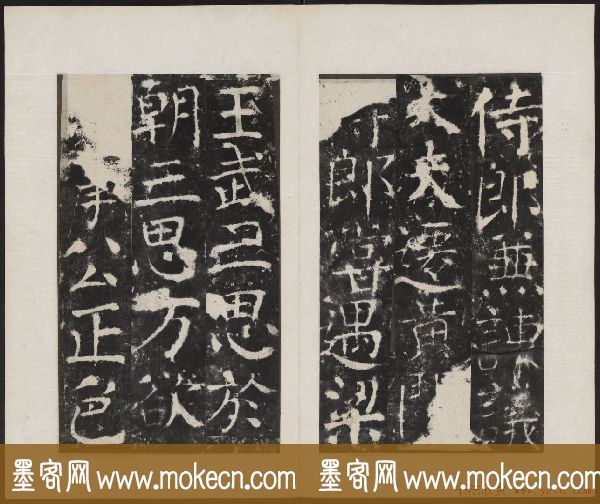 侍郎兼諫議
大夫遷黃門
郎嘗遇梁
王武三思於
朝三思方欲
手公正色
墨客网 www.mokecn.com
墨客网 www.mokecn.com